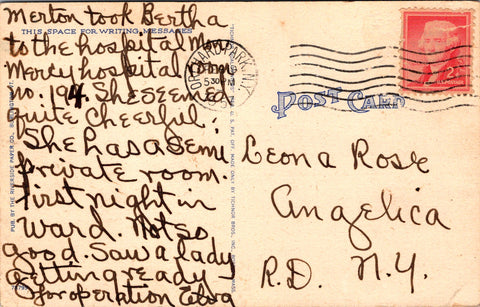 Merton took Bertha
THIS SPACE FOR WRITING MESSAGES
to the hospital Mon
Mercy hospital room
no. 194. She seemed
quite cheerful.
She has a semi
private room.
First night in
ward. Not so
good. Saw a lady
getting ready
for operation
ORCHARD PARK, N.Y.
530 PM
2¢
POST CARD
Leona Rose
Angelica
R.D. N.Y.
PUB. BY THE RIVERSIDE PAPER CO.
MADE ONLY BY TICHNOR BROS., INC.